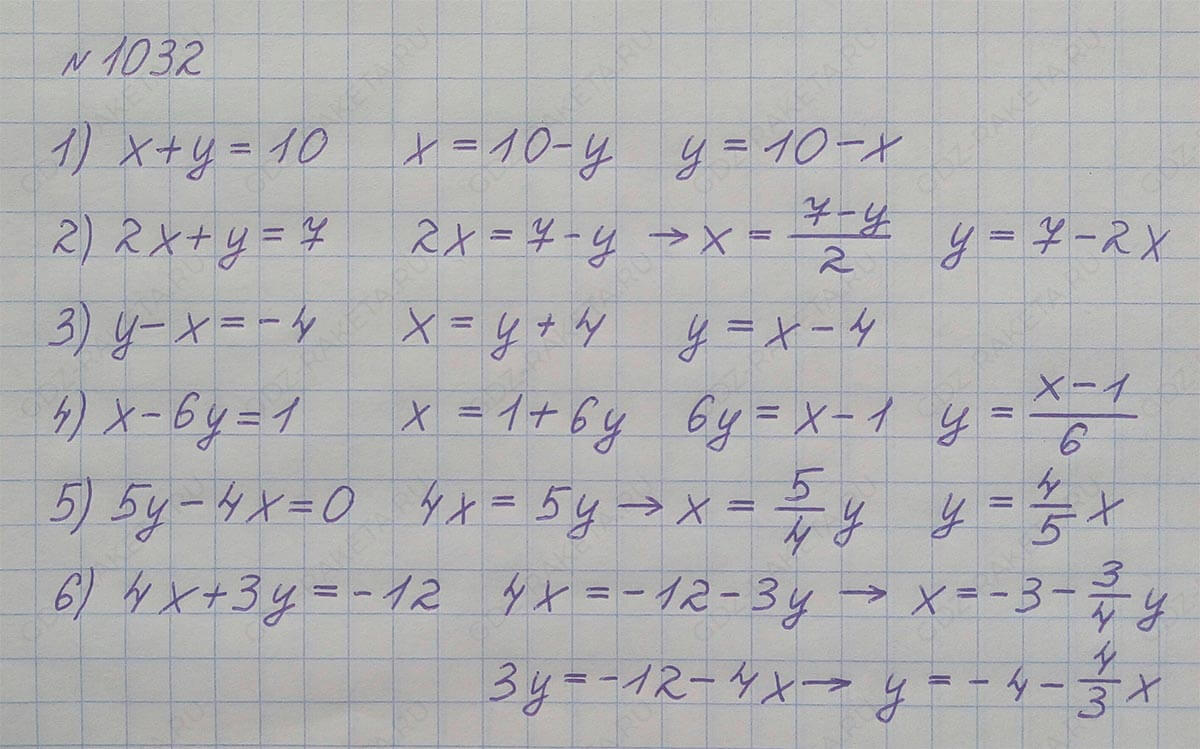 № 1032
1) x + y = 10 x = 10 - y y = 10 - x
2) 2x + y = 7 2x = 7 - y → x = (7 - y)/2 y = 7 - 2x
3) y - x = -4 x = y + 4 y = x - 4
4) x - 6y = 1 x = 1 + 6y 6y = x - 1 y = (x - 1)/6
5) 5y - 4x = 0 4x = 5y → x = 5/4 y y = 4/5 x
6) 4x + 3y = -12 4x = -12 - 3y → x = -3 - 3/4 y
3y = -12 - 4x → y = -4 - 4/3 x
GDZ-RAKETA.RU